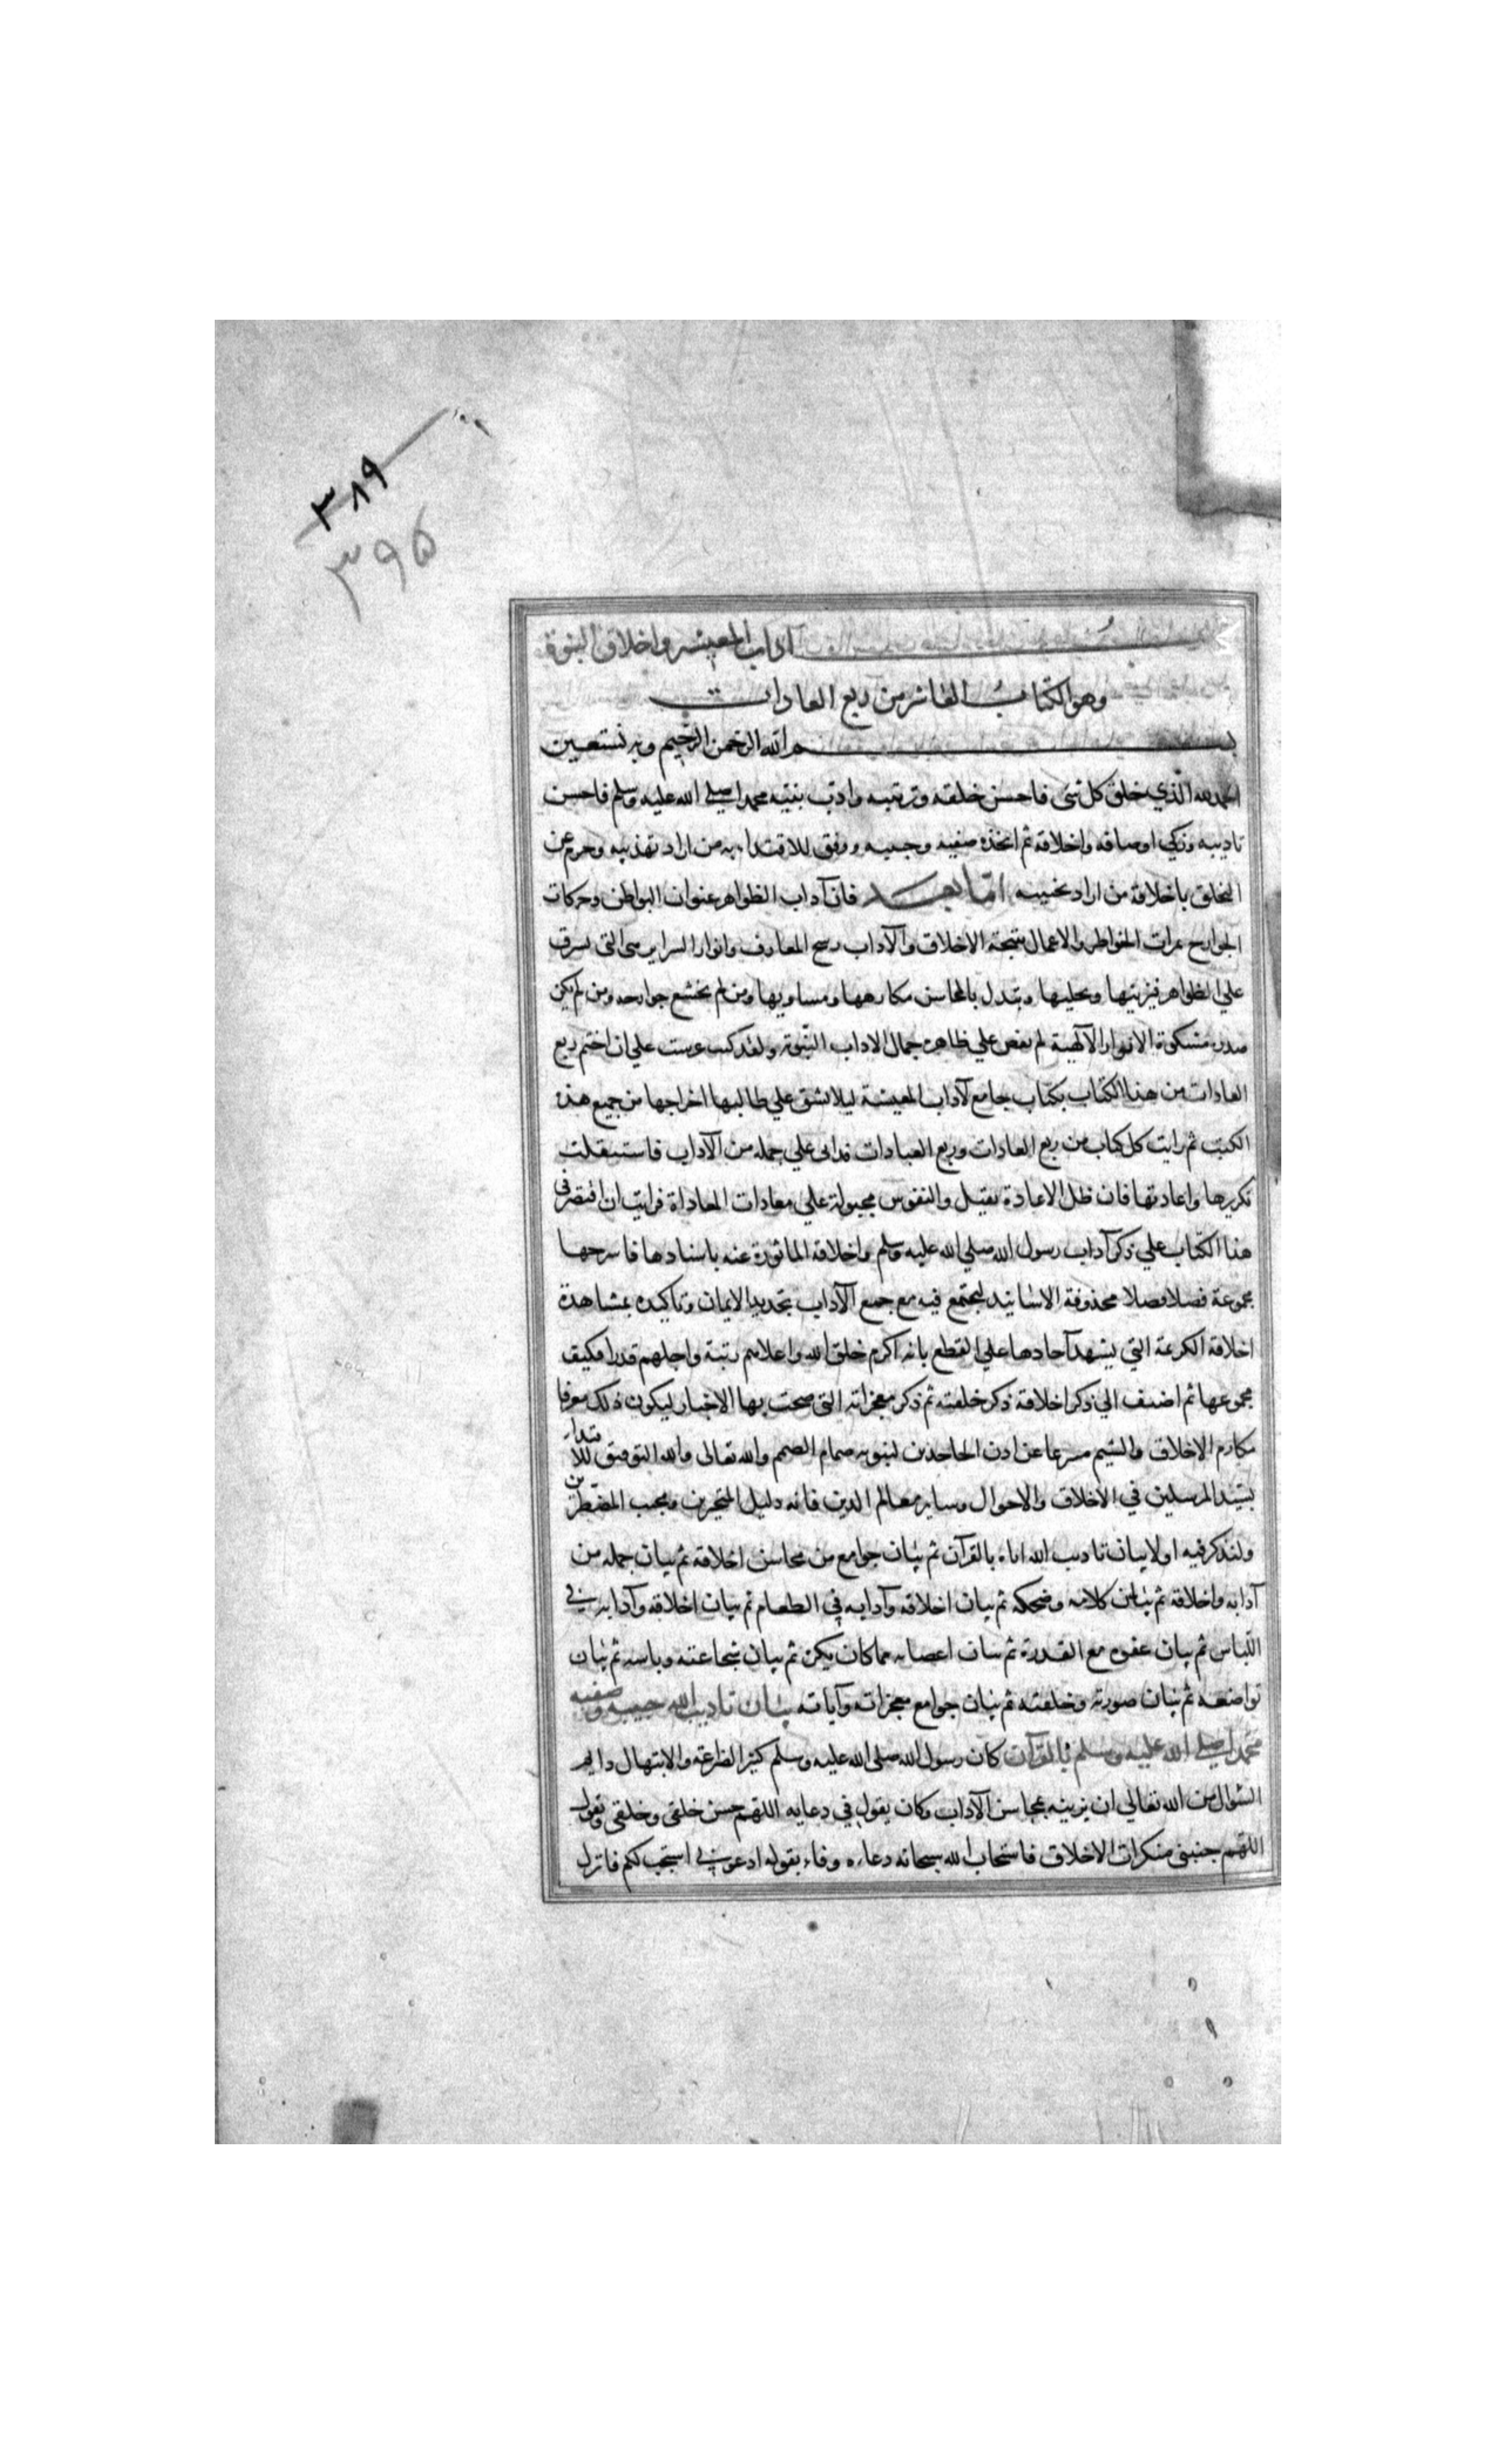 ٣٨٩
٣٩٥
آداب المعيشة واخلاق النبوة
وهو الكتاب العاشر من ربع العادات
بسم الله الرحمن الرحيم وبه نستعين
الحمد لله الذي خلق كل شئ فاحسن خلقه وترتيبه وادب نبيه محمدا صلى الله عليه وسلم فاحسن
تاديبه وزكي اوصافه واخلاقه ثم اتخذه صفيه وحبيبه ووفق للاقتداء به من اراد تهذيبه وحرم عن
التخلق باخلاقه من اراد تخييبه اما بعد فان آداب الظواهر عنوان البواطن وحركات
الجوارح ثمرات الخواطر والاعمال نتيجة الاخلاق والآداب رشح المعارف وانوار السراير هي التي تشرق
علي الظواهر فيزينها ويحليها وتبدل بالمحاسن مكارهها ومساويها ومن لم يخشع جوارحه ومن لم يكن
صدره مشكوة الانوار الآلهية لم يفض علي ظاهره جمال الاداب النبوية ولقد كنت عزمت علي ان اختم ربع
العادات من هذا الكتاب بكتاب جامع لآداب المعيشة ليلا تشق علي طالبها اخراجها من جميع هذه
الكتب ثم رايت كل كتاب من ربع العادات وربع العبادات قد اتى علي جمله من الآداب فاستثقلت
تكريرها واعادتها فان ظل الاعادة ثقيل والنفوس مجبولة علي معادات المعاداة فرايت ان اقتصر في
هذا الكتاب علي ذكر آداب رسول الله صلي الله عليه وسلم واخلاقه الماثورة عنه باسنادها فاسرحها
مجموعة فصلا فصلا محذوفة الاسانيد ليجتمع فيه مع جمع الآداب تجديد الايمان وتاكيده بمشاهدة
اخلاقه الكريمة التي يشهد آحادها علي القطع بانه اكرم خلق الله واعلاهم رتبة واجلهم قدرا فكيف
مجموعها ثم اضيف الي ذكر اخلاقه ذكر خلقته ثم ذكر معجزاته التي صحت بها الاخبار ليكون ذلك معرفا
مكارم الاخلاق والشيم منزعا عن اذن الجاحدين لنبوته صمام الصمم والله تعالى والله التوفيق للاقتداء
بسيد المرسلين في الاخلاق والاحوال وساير معالم الدين فانه دليل المتحيرين ومجيب المضطرين
ولنذكر فيه اولا بيان تاديب الله اياه بالقرآن ثم بيان جوامع من محاسن اخلاقه ثم بيان جمله من
آدابه واخلاقه ثم بيان كلامه وضحكه ثم بيان اخلاقه وآدابه في الطعام ثم بيان اخلاقه وآدابه في
اللباس ثم بيان عفوه مع القدرة ثم بيان اغضايه عما كان يكره ثم بيان شجاعته وباسه ثم بيان
تواضعه ثم بيان صورته وخلقته ثم بيان جوامع معجزاته وآياته بيان تاديب الله حبيبه وصفيه
محمدا صلى الله عليه وسلم بالقرآن كان رسول الله صلى الله عليه وسلم كثير الضراعة والابتهال دايم
السؤال من الله تعالي ان يزينه بمحاسن الآداب وكان يقول في دعايه اللهم حسن خلقي وخلقي ويقول
اللهم جنبني منكرات الاخلاق فاستجاب الله سبحانه دعاءه وفاء بقوله ادعوني استجب لكم فانزل